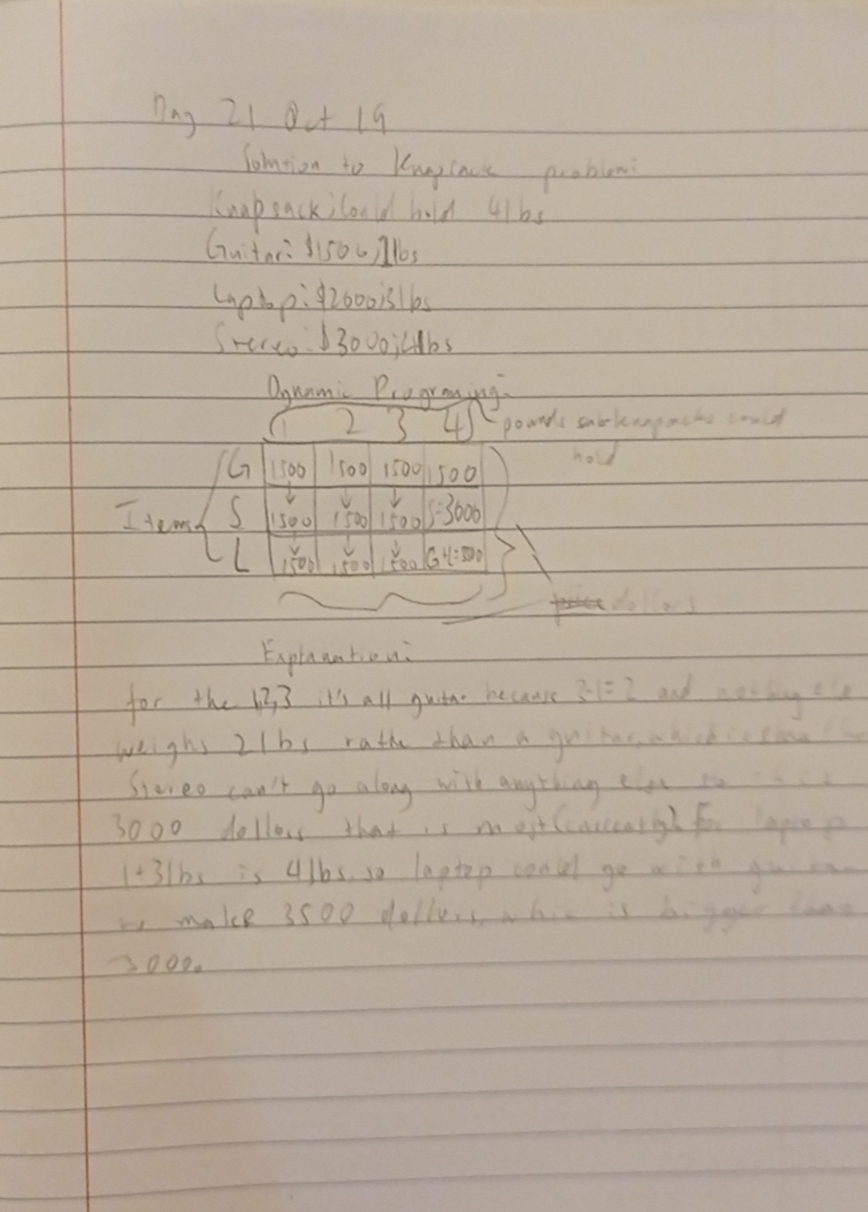 Day 21 Oct 19
Solution to Knapsack problem:
Knapsack: Could hold 4lbs
Guitar: $1500, 1lbs
Laptop: $2000; 3lbs
Stereo: $3000; 4lbs
Dynamic Programing:
1 2 3 4 pounds subknapsacks could
hold
G 1500 1500 1500 1500
Items S 1500 1500 1500 S=3000
L 1500 1500 1500
dollars
Explanation:
for the 1,2,3 it's all guitar because 3-1=2 and nothing
weighs 2lbs rathe than a guitar, which is
Stereo can't go along with anything else so
3000 dollers that is most (currently). For laptop
1+3lbs is 4lbs, so laptop could go with guitar
to make 3500 dollers, whic is bigger than
3000.